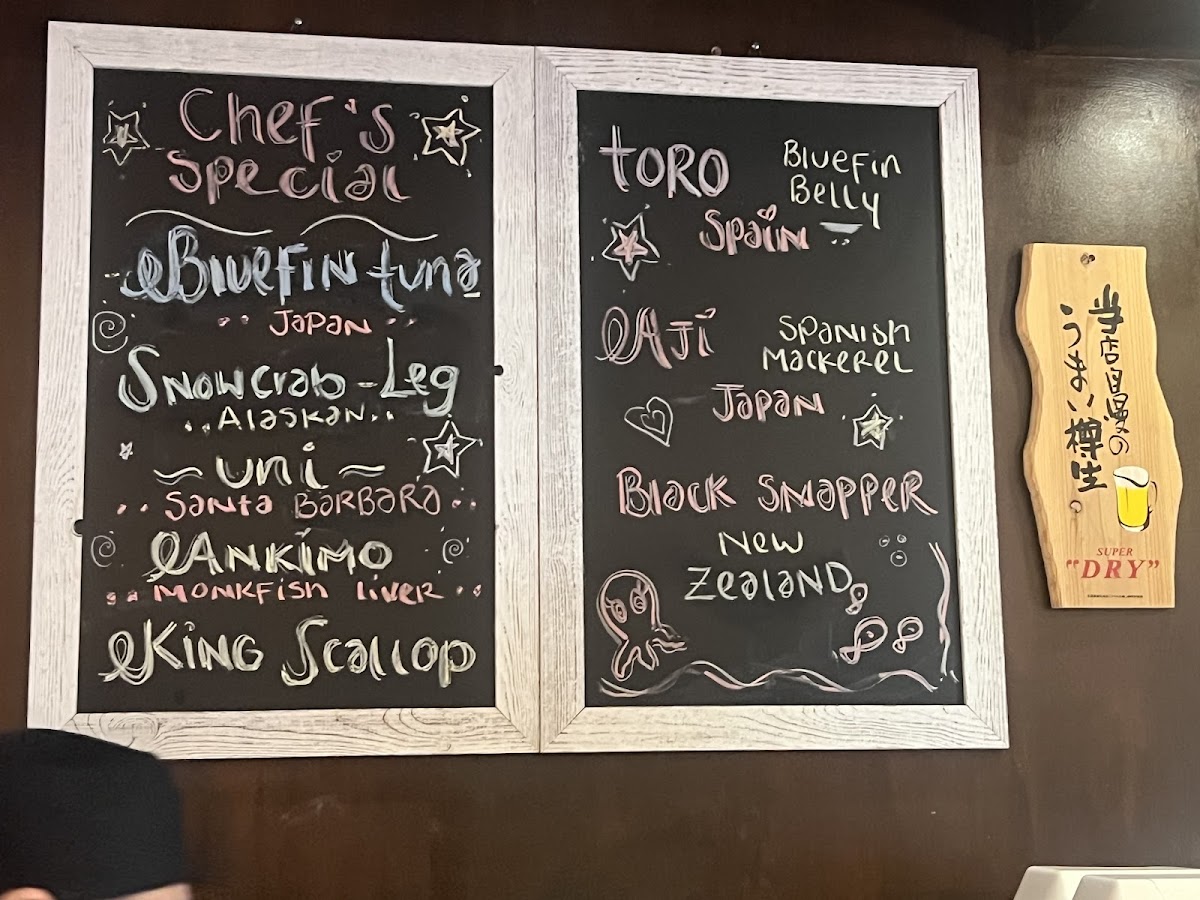 Chef's
Special
Bluefin tuna
Japan
Snowcrab-Leg
Alaskan
~ uni ~
Santa Barbara
Ankimo
Monkfish liver
King Scallop
TORO
Bluefin
Belly
Spain
Aji
Spanish
Mackerel
Japan
Black Snapper
New
Zealand
当店自慢の
うまい樽生。
SUPER
"DRY"